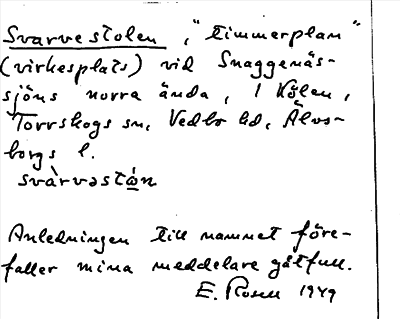 Svarvestolen, "timmerplan"
(virkesplats) vid Snaggenäs-
sjöns norra ända, i Kölen,
Torrskogs sn, Vedbo hd, Älvs-
borgs l.
svàrvəstón
Anledningen till namnet före-
faller mina meddelare gåtfull.
E. Rosell 1949